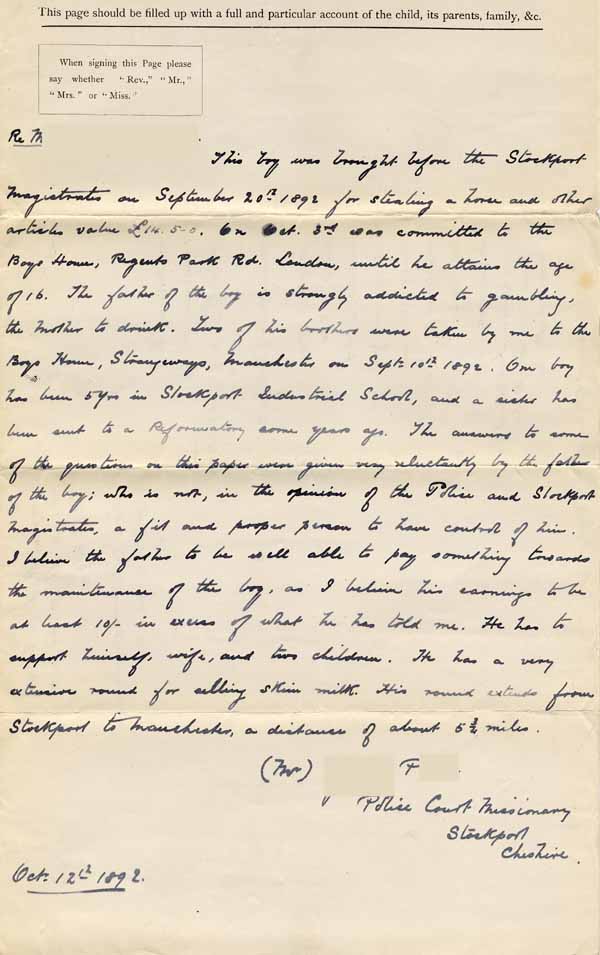 This page should be filled up with a full and particular account of the child, its parents, family, &c.
When signing this Page please
say whether "Rev.," "Mr.,"
"Mrs." or "Miss."
Re M
This boy was brought before the Stockport
Magistrates on September 20th 1892 for stealing a horse and other
articles value £14.5-0. On Oct. 3rd was committed to the
Boys Home, Regents Park Rd. London, until he attains the age
of 16. The father of the boy is strongly addicted to gambling,
the Mother to drink. Two of his brothers were taken by me to the
Boys Home, Strangeways, Manchester on Sept. 10th 1892. One boy
has been 5 yrs in Stockport Industrial School, and a sister has
been sent to a Reformatory some years ago. The answers to some
of the questions on this paper were given very reluctantly by the father
of the boy; who is not, in the opinion of the Police and Stockport
Magistrates, a fit and proper person to have control of him.
I believe the father to be well able to pay something towards
the maintenance of the boy, as I believe his earnings to be
at least 10/- in excess of what he has told me. He has to
support himself, wife, and two children. He has a very
extensive round for selling skim milk. His round extends from
Stockport to Manchester, a distance of about 5 1/2 miles.
(Mr) F
Police Court Missionary
Stockport
Cheshire.
Oct. 12th 1892.